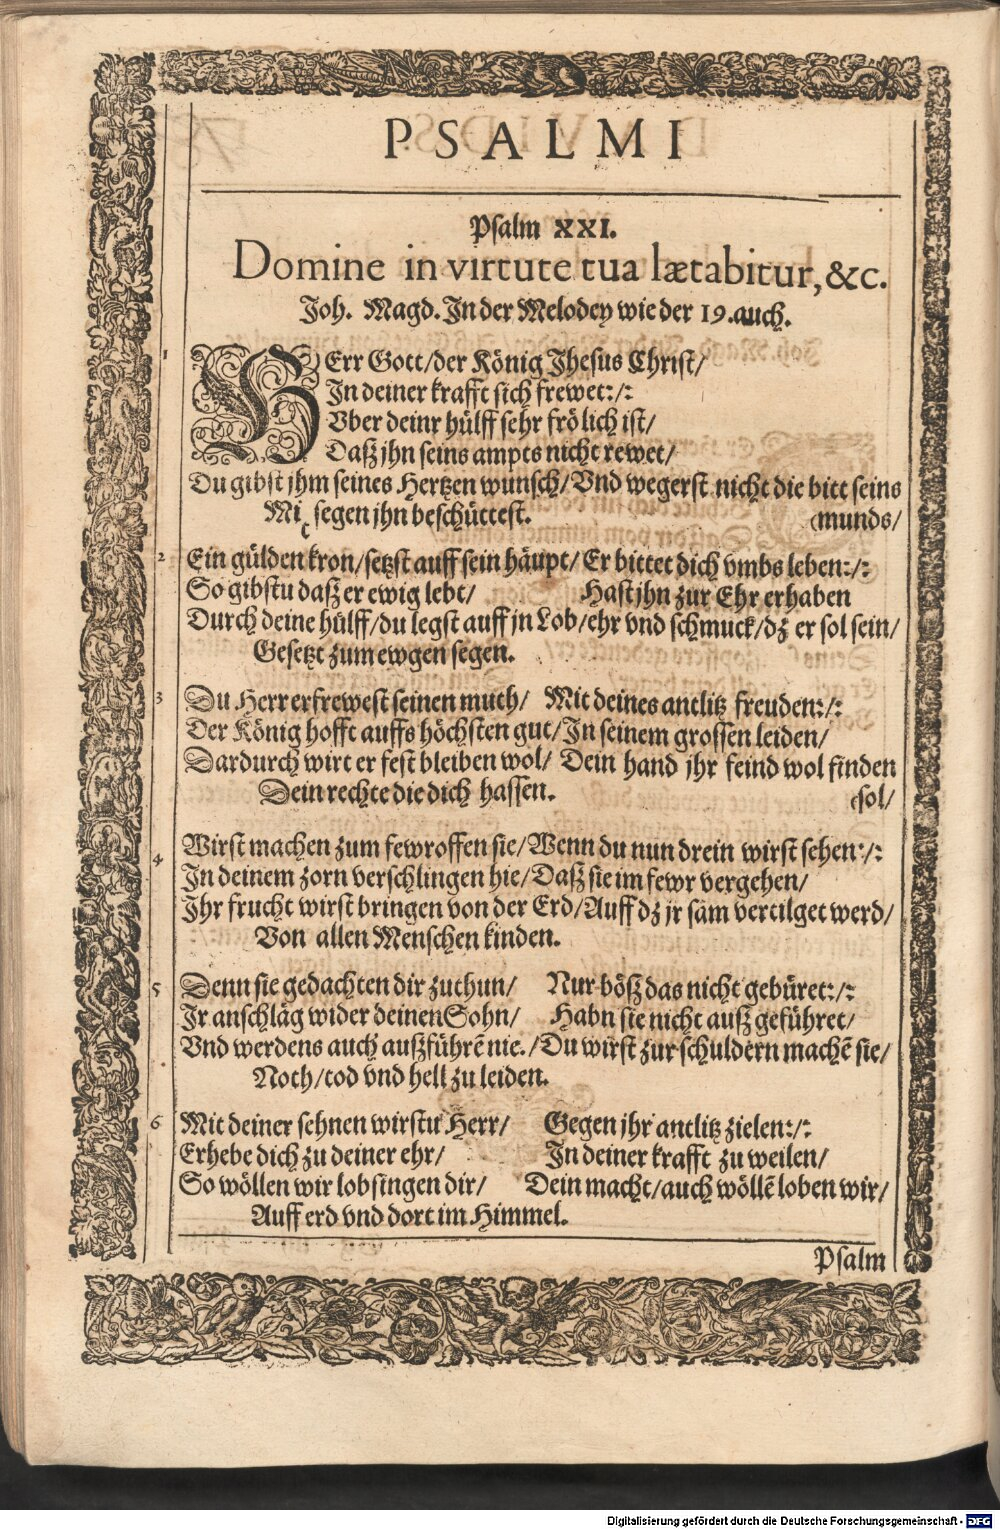 PSALMI
Psalm XXI.
Domine in virtute tua lætabitur, &c.
Joh. Magd. In der Melodey wie der 19. auch.
1 HErr Gott/der König Jhesus Christ/
In deiner krafft sich frewet:/:
Vber deinr hülff sehr frölich ist/
Daß jhn seins ampts nicht rewet/
Du gibst jhm seines Hertzen wunsch/Vnd wegerst nicht die bitt seins
Mit segen jhn beschüttest. (munds/
2 Ein gülden kron/setzst auff sein häupt/Er bittet dich vmbs leben:/:
So gibstu daß er ewig lebt/ Hast jhn zur Ehr erhaben
Durch deine hülff/du legst auff jn Lob/ehr vnd schmuck/dz er sol sein/
Gesetzt zum ewgen segen.
3 Du Herr erfrewest seinen muth/ Mit deines antlitz freuden:/:
Der König hofft auffs höchsten gut/In seinem grossen leiden/
Dardurch wirt er fest bleiben wol/ Dein hand jhr feind wol finden
Dein rechte die dich hassen. (sol/
4 Wirst machen zum fewroffen sie/Wenn du nun drein wirst sehen:/:
In deinem zorn verschlingen hie/Daß sie im fewr vergehen/
Ihr frucht wirst bringen von der Erd/Auff dz jr sam vertilget werd/
Von allen Menschen kinden.
5 Denn sie gedachten dir zuthun/ Nur böß das nicht gebüret:/:
Ir anschläg wider deinen Sohn/ Habn sie nicht auß geführet/
Vnd werdens auch außführẽ nie./Du wirst zur schuldern machẽ sie/
Noth/tod vnd hell zu leiden.
6 Mit deiner sehnen wirstu Herr/ Gegen jhr antlitz zielen:/:
Erhebe dich zu deiner ehr/ In deiner krafft zu weilen/
So wöllen wir lobsingen dir/ Dein macht/auch wöllẽ loben wir/
Auff erd vnd dort im Himmel.
Psalm
Digitalisierung gefördert durch die Deutsche Forschungsgemeinschaft - DFG